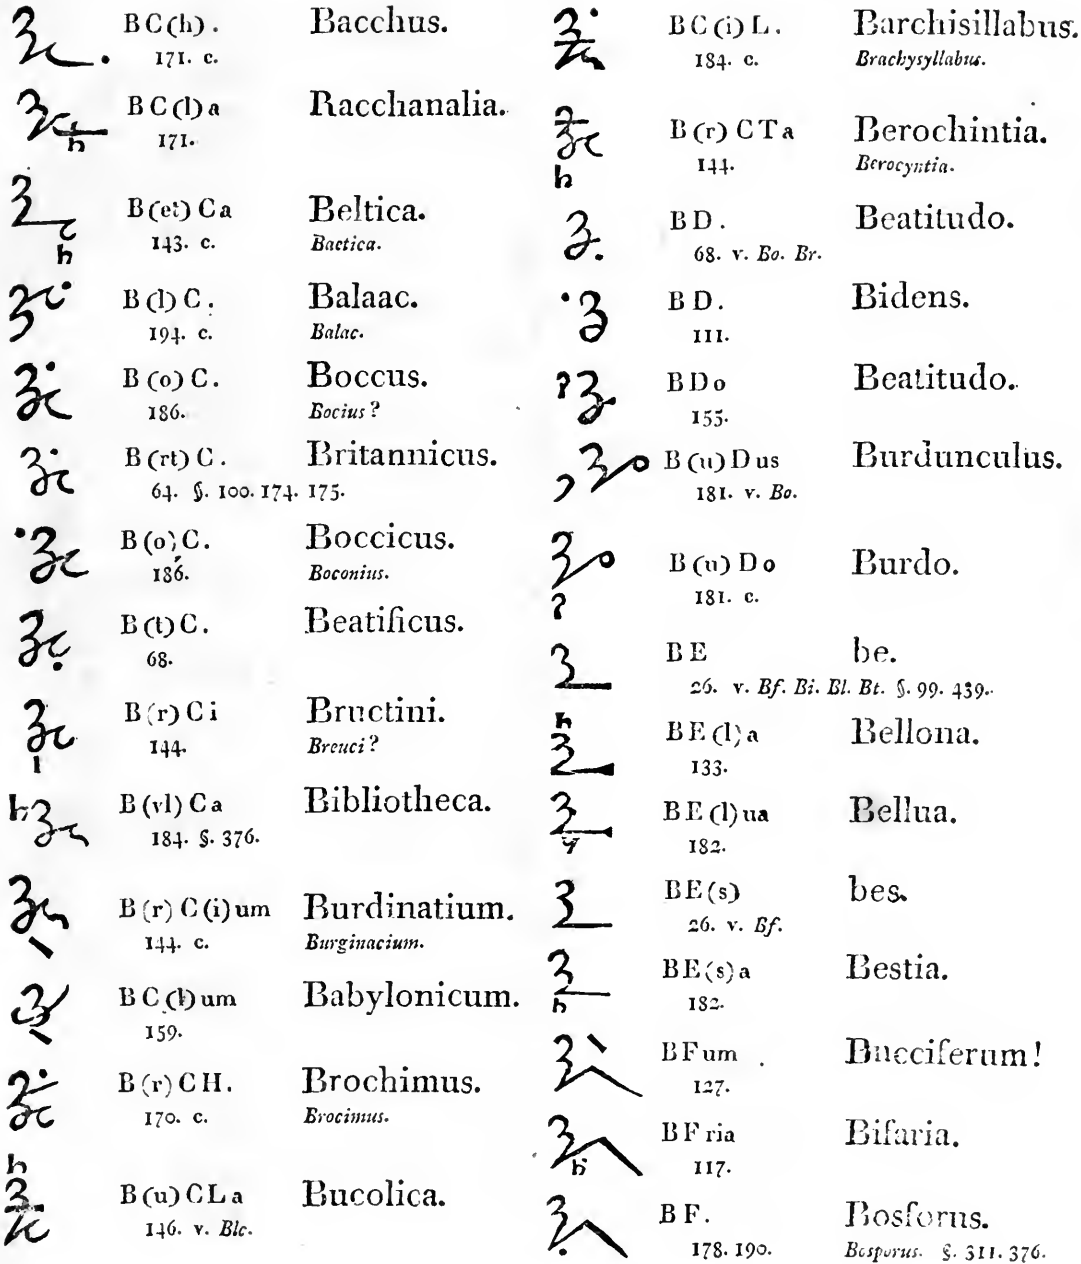 B C (h) . Bacchus.
171. c.
B C (l) a Racchanalia.
171.
B (et) C a Beltica.
143. c. Baetica.
B (l) C . Balaac.
194. c. Balac.
B (o) C . Boccus.
186. Bocius ?
B (rt) C . Britannicus.
64. §. 100. 174. 175.
B (o) C . Boccicus.
186. Boconius.
B (t) C . Beatificus.
68.
B (r) C i Bructini.
144. Breuci ?
B (vl) C a Bibliotheca.
184. §. 376.
B (r) C (i) um Burdinatium.
144. c. Burginacium.
B C (b) um Babylonicum.
159.
B (r) C H . Brochimus.
170. c. Brocimus.
B (u) C L a Bucolica.
146. v. Blc.
B C (i) L . Barchisillabus.
184. c. Brachysyllabus.
B (r) C T a Berochintia.
144. Berocyntia.
B D . Beatitudo.
68. v. Bo. Br.
B D . Bidens.
111.
B D o Beatitudo.
155.
B (u) D us Burdunculus.
181. v. Bo.
B (u) D o Burdo.
181. c.
B E be.
26. v. Bf. Bi. Bl. Bt. §. 99. 439.
B E (l) a Bellona.
133.
B E (l) ua Bellua.
182.
B E (s) bes.
26. v. Bf.
B E (s) a Bestia.
182.
B F um Bucciferum !
127.
B F ria Bifaria.
117.
B F . Bosforus.
178. 190. Bosporus. §. 311. 376.